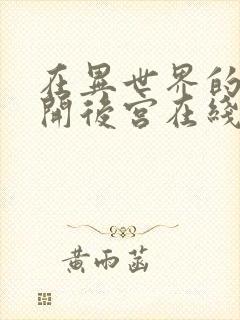 在異世界的
開後宮在綫
黃雨菡